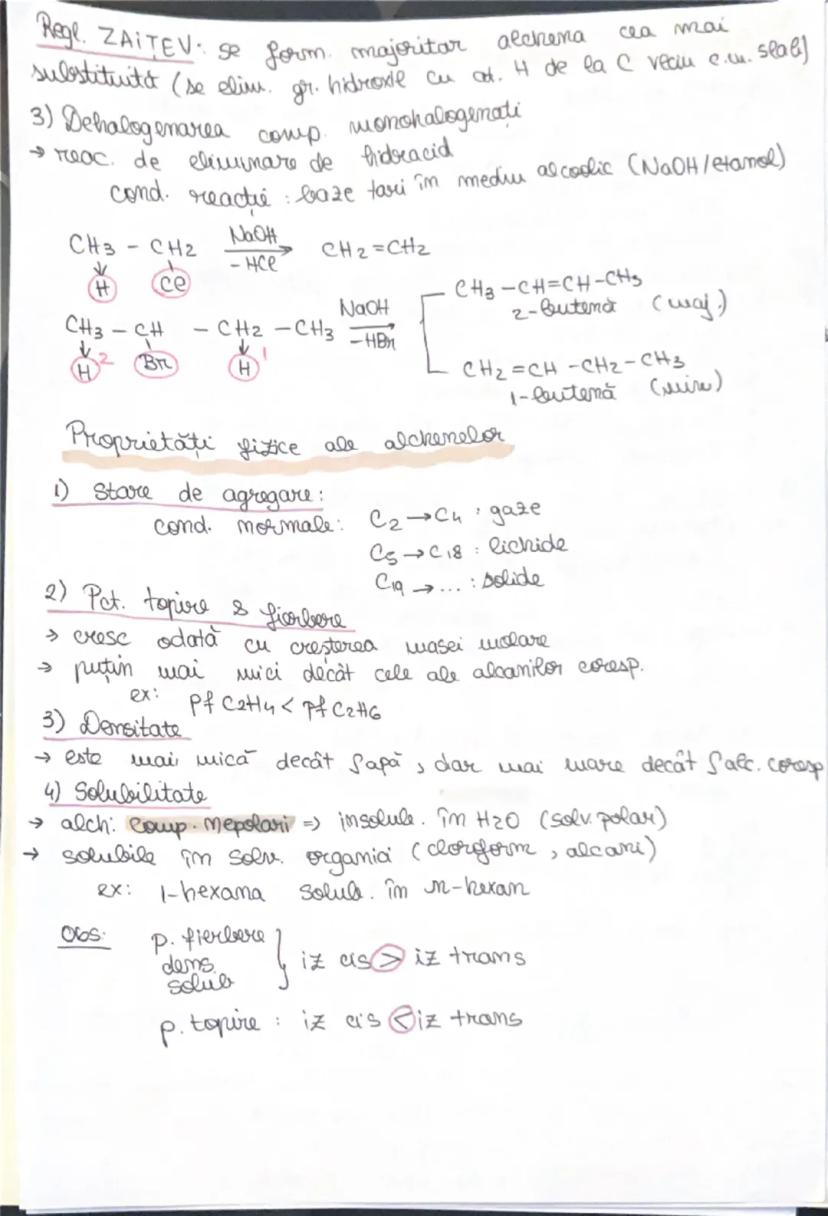 Regl. ZAITEV: se form. majoritar alchena cea mai
substituită (se elim. gr. hidroxil cu at. H de la C vecin c.m. slab)
3) Dehalogenarea comp. monohalogenați
→ reac. de eliminare de hidracid
cond. reacție: baze tari în mediu alcoolic (NaOH/etanol)
CH3 - CH2 NaOH -HCl → CH2=CH2
H Cl
CH3 - CH - CH2 - CH3 NaOH -HBr →
H 2 Br H 1
CH3-CH=CH-CH3
2-butenă (maj.)
CH2=CH-CH2-CH3
1-butenă (min)
Proprietăți fizice ale alchenelor
1) Stare de agregare:
cond. normale: C2→C4: gaze
C5→C18: lichide
C19→...: solide
2) Pct. topire & fierbere
→ cresc odată cu creșterea masei molare
→ puțin mai mici decât cele ale alcanilor coresp.
ex: pf C2H4 < pf C2H6
3) Densitate
→ este mai mică decât ρapă, dar mai mare decât ρalc. coresp
4) Solubilitate
→ alch: comp. nepolari => insolub. în H2O (solv. polar)
→ solubile în solv. organici (cloroform, alcani)
ex: 1-hexana solub. în n-hexan
Obs: p. fierbere
dens.
solub
} iz cis > iz trans
p. topire: iz cis < iz trans